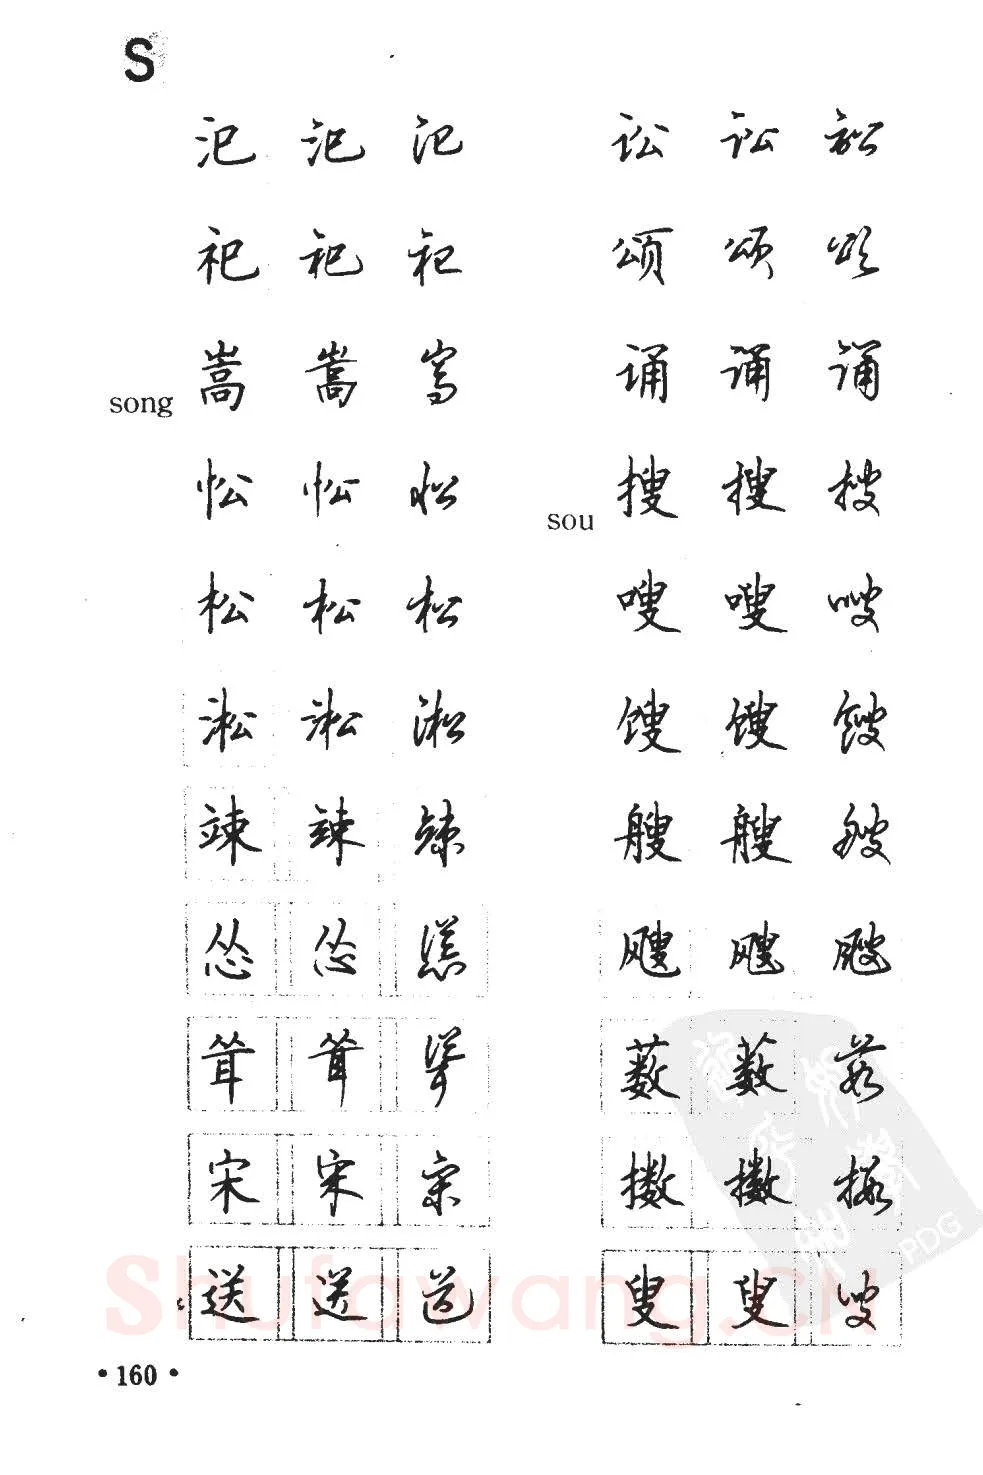 S
汜 汜 汜
祀 祀 祀
song 嵩 嵩 嵩
忪 忪 忪
松 松 松
淞 淞 淞
竦 竦 竦
怂 怂 怂
耸 耸 耸
宋 宋 宋
送 送 送
讼 讼 讼
颂 颂 颂
诵 诵 诵
sou 搜 搜 搜
嗖 嗖 嗖
馊 馊 馊
艘 艘 艘
飕 飕 飕
薮 薮 薮
擞 擞 擞
叟 叟 叟
·160·
Shufawang.CN
PDG